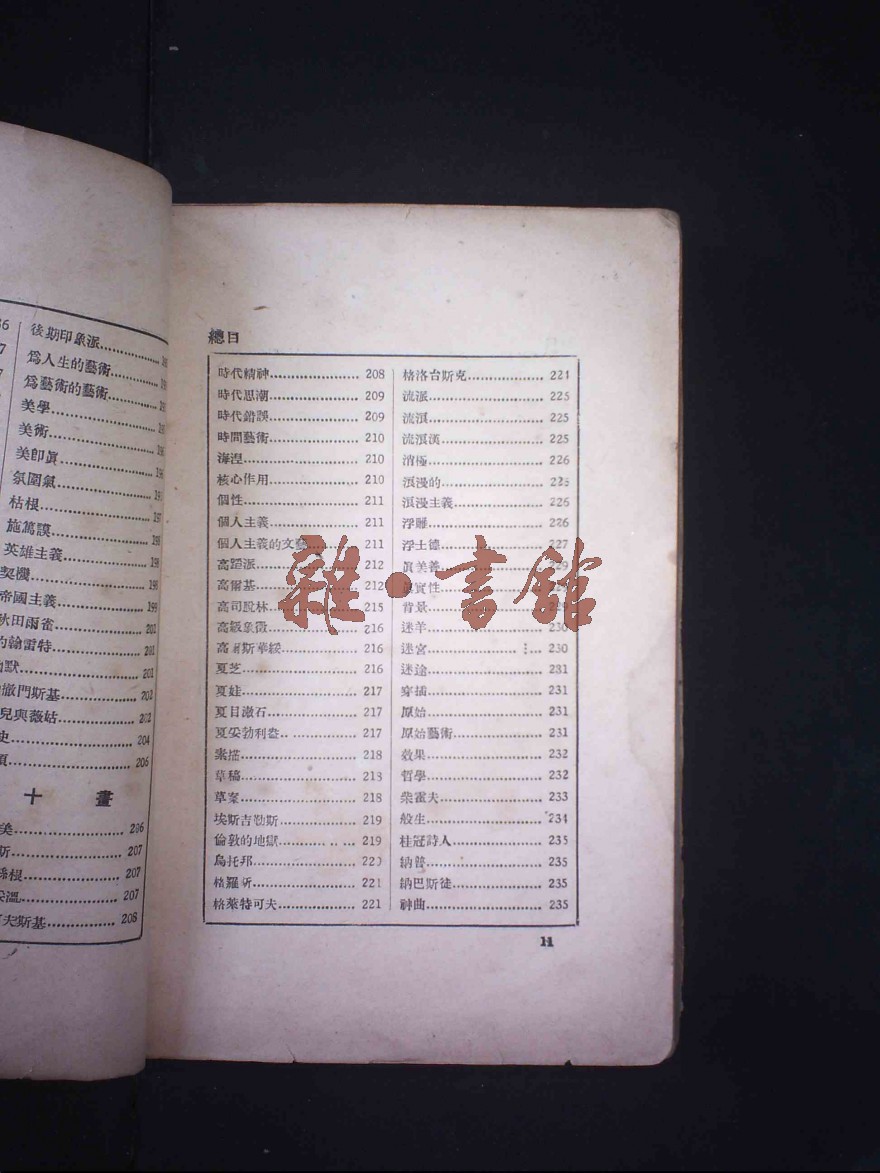 後期印象派
爲人生的藝術
爲藝術的藝術
美學
美術
美卽眞
氛圍氣
枯根
施篤謨
英雄主義
契機
帝國主義 199
秋田雨雀 202
約翰雷特 201
默 201
徹門斯基 202
兒與薇姑 202
史 204
206
十畫
美 206
斯 207
根 207
溫 207
夫斯基 208
總目
時代精神 208
時代思潮 209
時代錯誤 209
時間藝術 210
海涅 210
核心作用 210
個性 211
個人主義 211
個人主義的文藝 211
高蹈派 212
高爾基 212
高司設林 215
高級象徵 216
高爾斯華綏 216
夏芝 216
夏娃 217
夏目漱石 217
夏芝勃利盎 217
素描 218
草稿 218
草案 218
埃斯吉勒斯 219
倫敦的地獄 219
烏托邦 220
格羅斯 221
格萊特可夫 221
格洛台斯克 224
流派 225
流浪 225
流浪漢 225
消極 226
浪漫的 226
浪漫主義 226
浮雕 226
浮士德 227
眞美善 229
眞實性 229
背景 229
迷羊 230
迷宮 230
迷途 231
穿插 231
原始 231
原始藝術 231
效果 232
哲學 232
柴霍夫 233
般生 234
桂冠詩人 235
納普 235
納巴斯徒 235
神曲 235
11
雜·書館